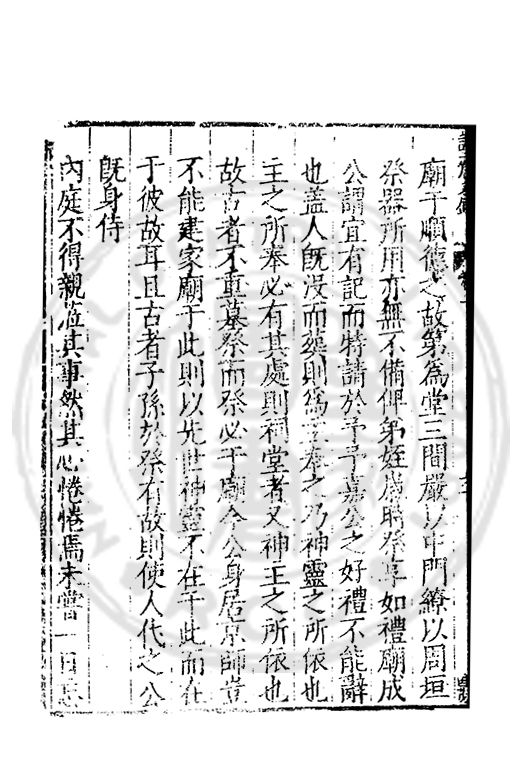 廟于順德之故第為堂三間嚴以中門繚以周垣
祭器所用亦無不備俾弟姪歲時祭享如禮廟成
公謂宜有記而特請於予予嘉公之好禮不能辭
也蓋人既沒而葬則為主奉之乃神靈之所依也
主之所奉必有其處則祠堂者又神主之所依也
故古者不重墓祭而祭必于廟今公身居京師豈
不能建家廟于此則以先世神靈不在于此而在
于彼故耳且古者子孫於祭有故則使人代之公
既身侍
內庭不得親蒞其事然其心惓惓焉未嘗一日忘